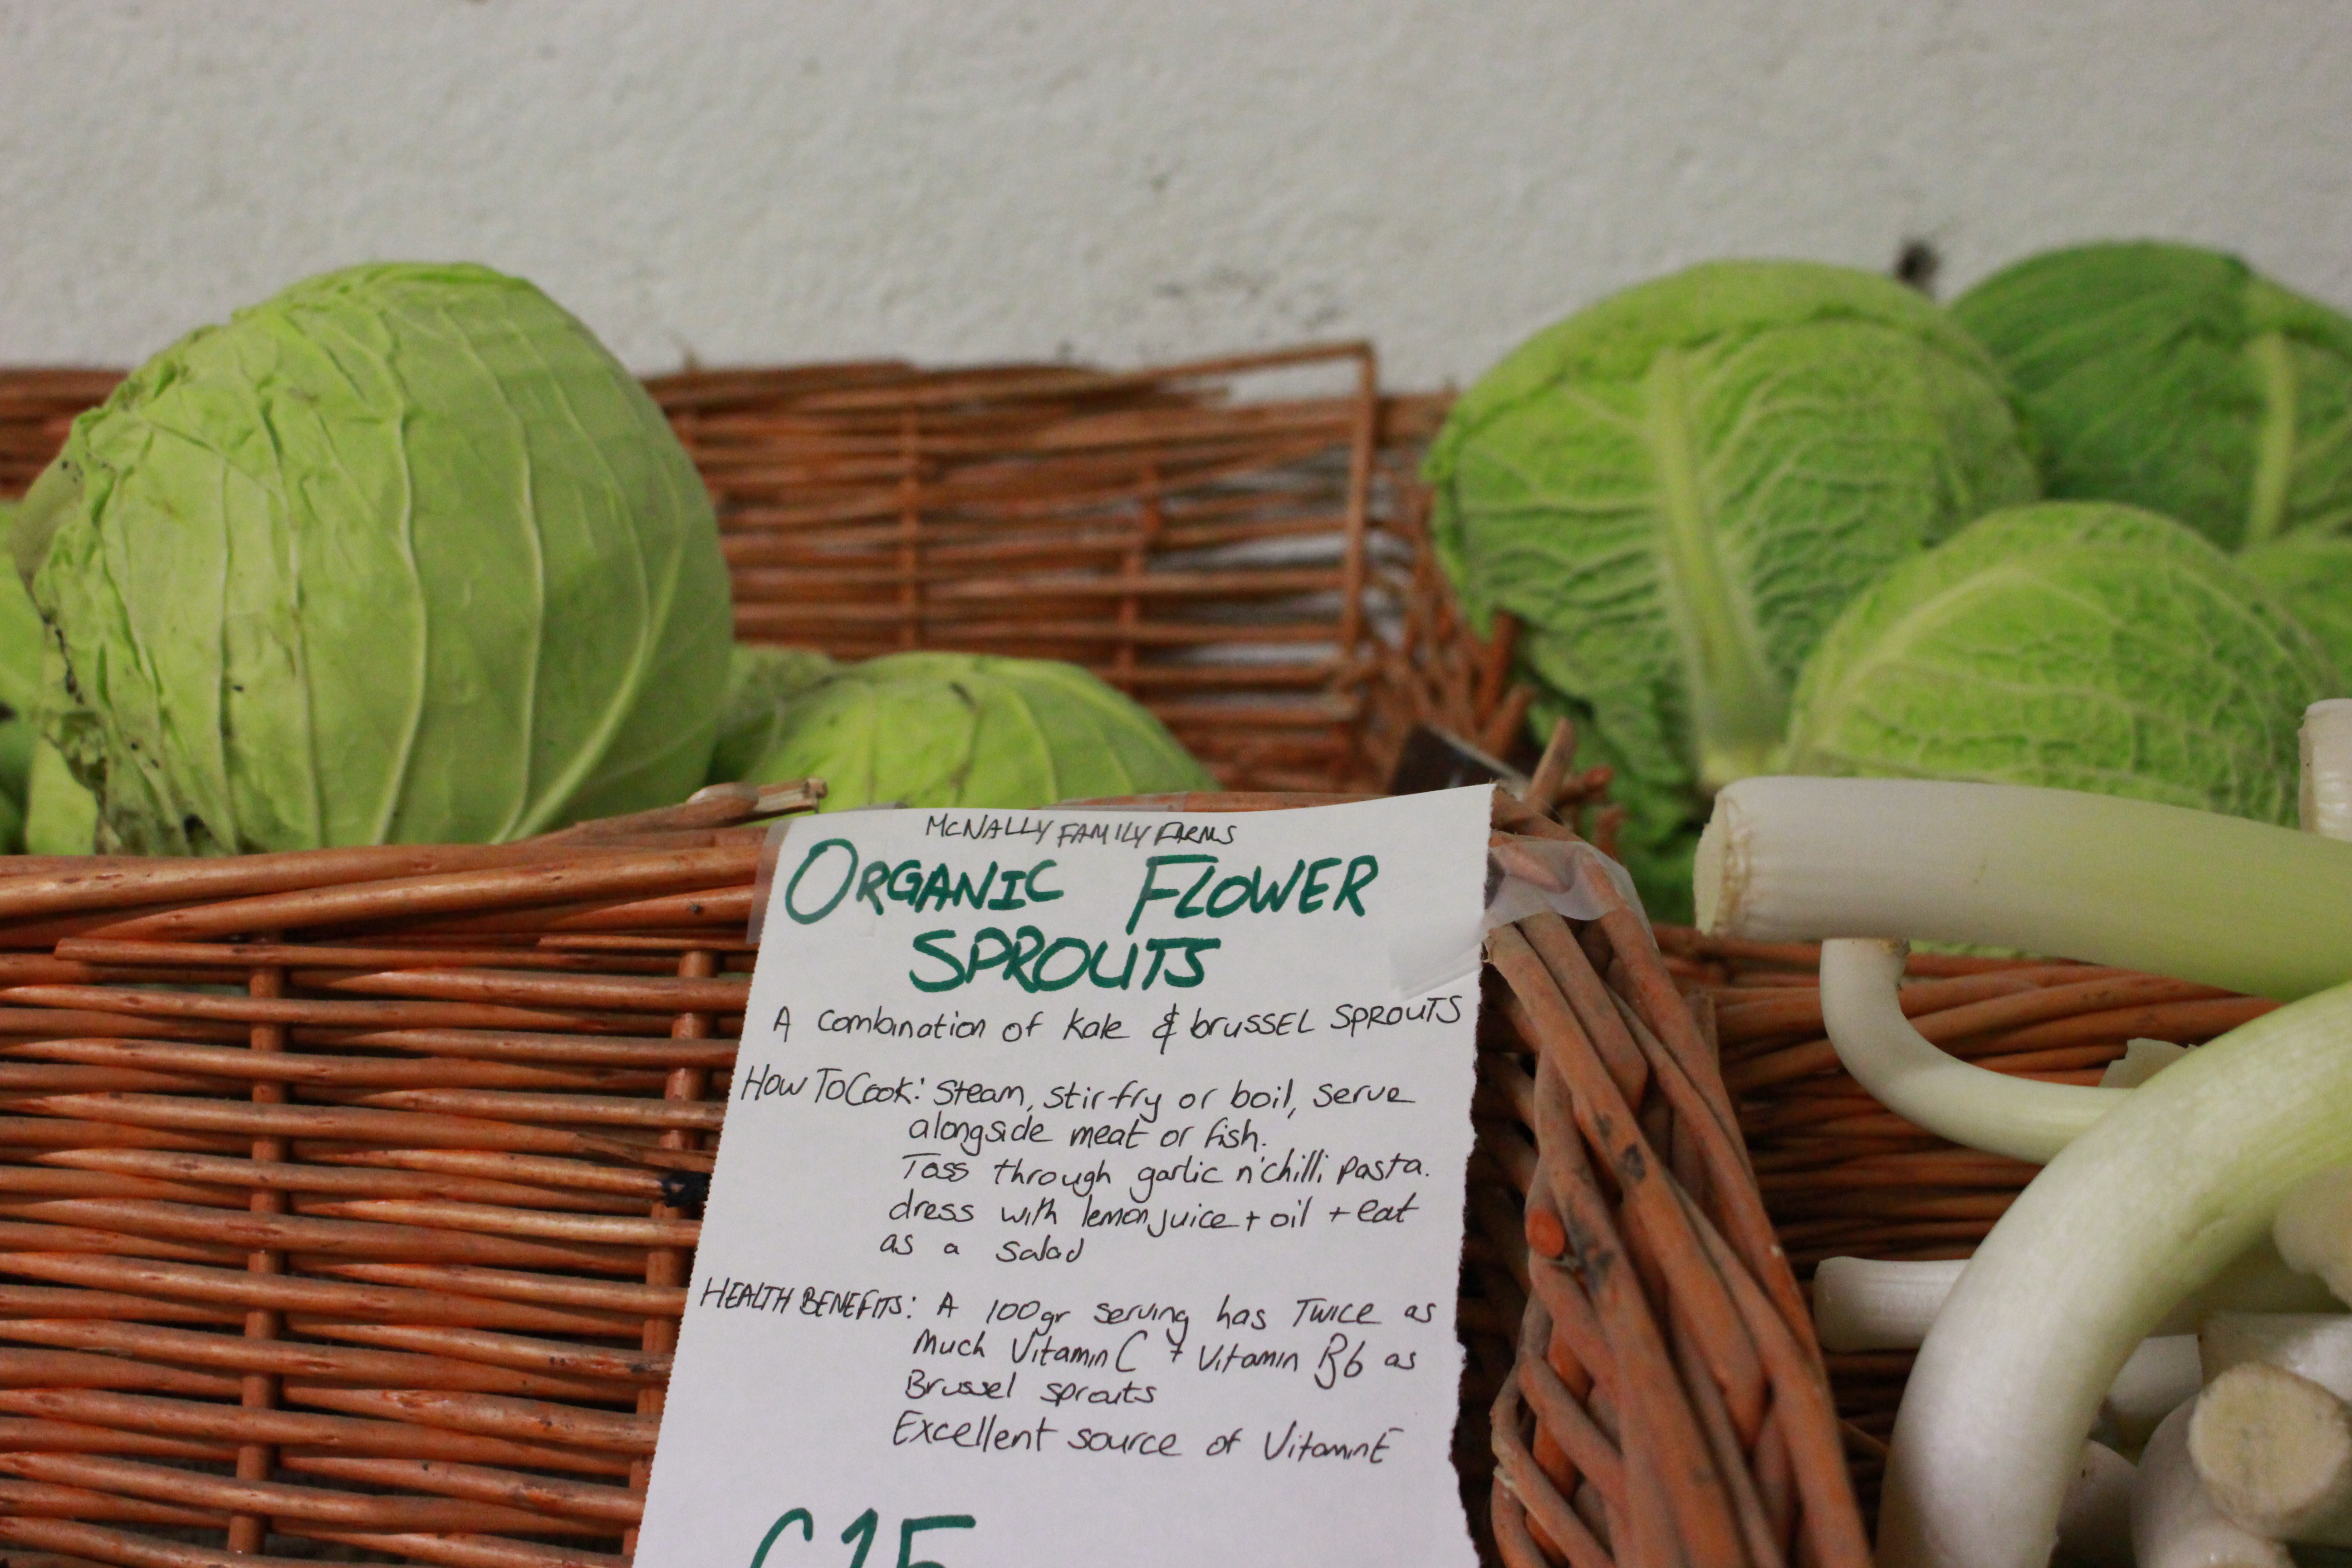 McNALLY FAMILY FARMS
ORGANIC FLOWER
SPROUTS
A combination of kale & brussel SPROUTS
How To Cook: Steam, stir-fry or boil, serve
alongside meat or fish.
Toss through garlic n'chilli pasta.
dress with lemon juice + oil + eat
as a salad
HEALTH BENEFITS: A 100gr serving has TWICE as
Much Vitamin C + Vitamin B6 as
Brussel sprouts
Excellent source of Vitamin E